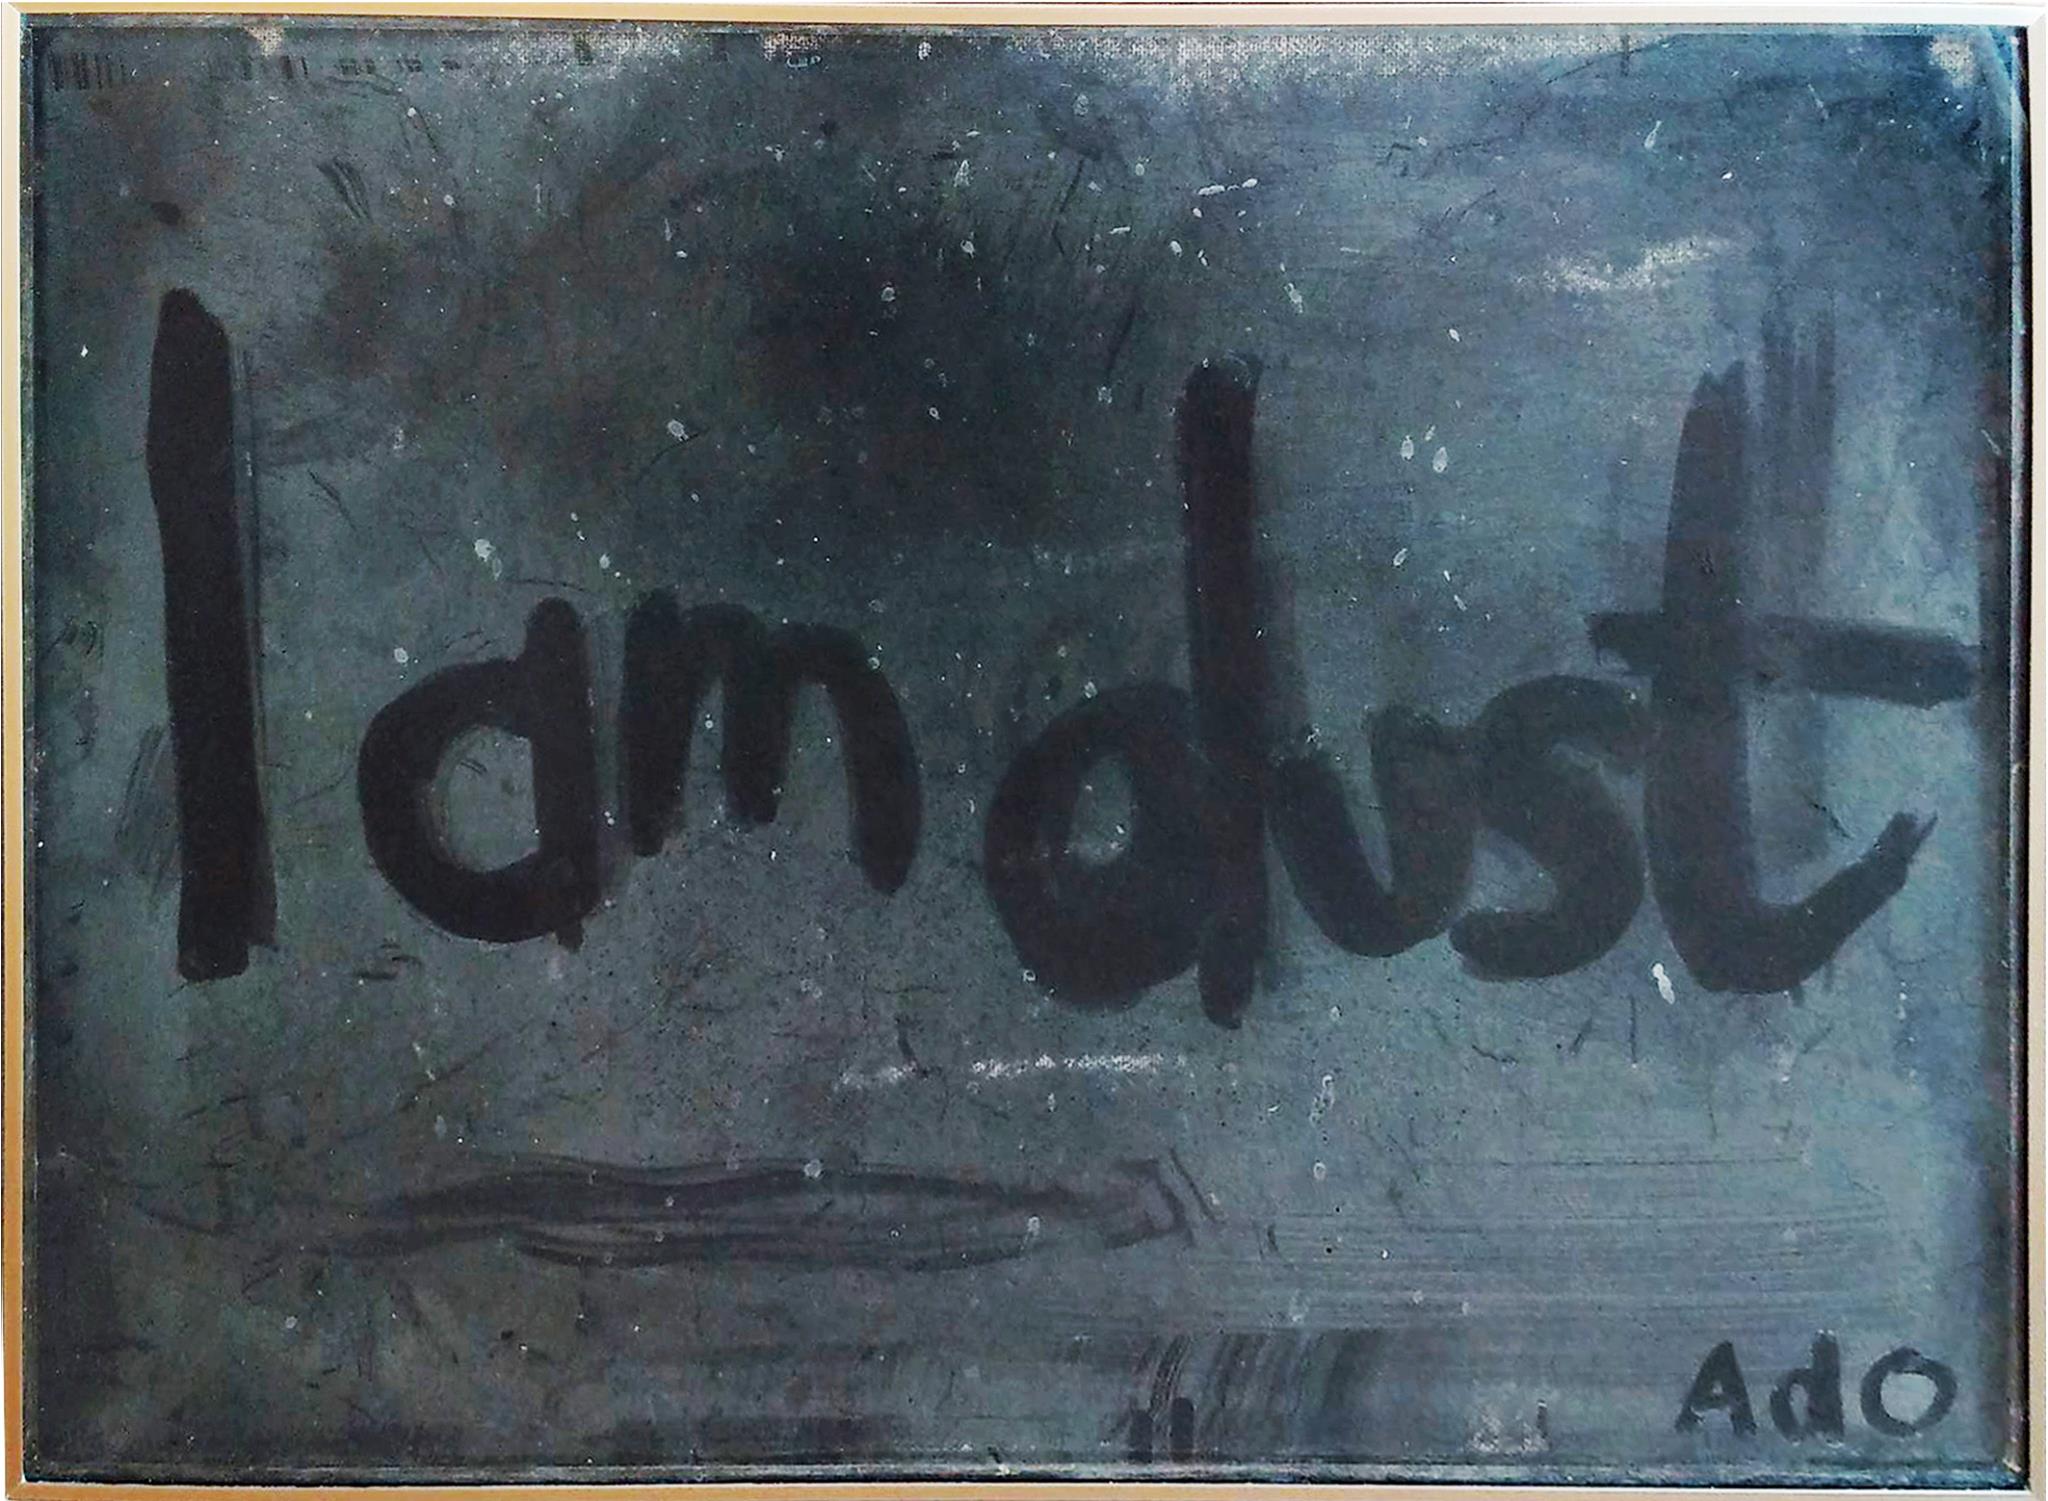 I am dust
AdO